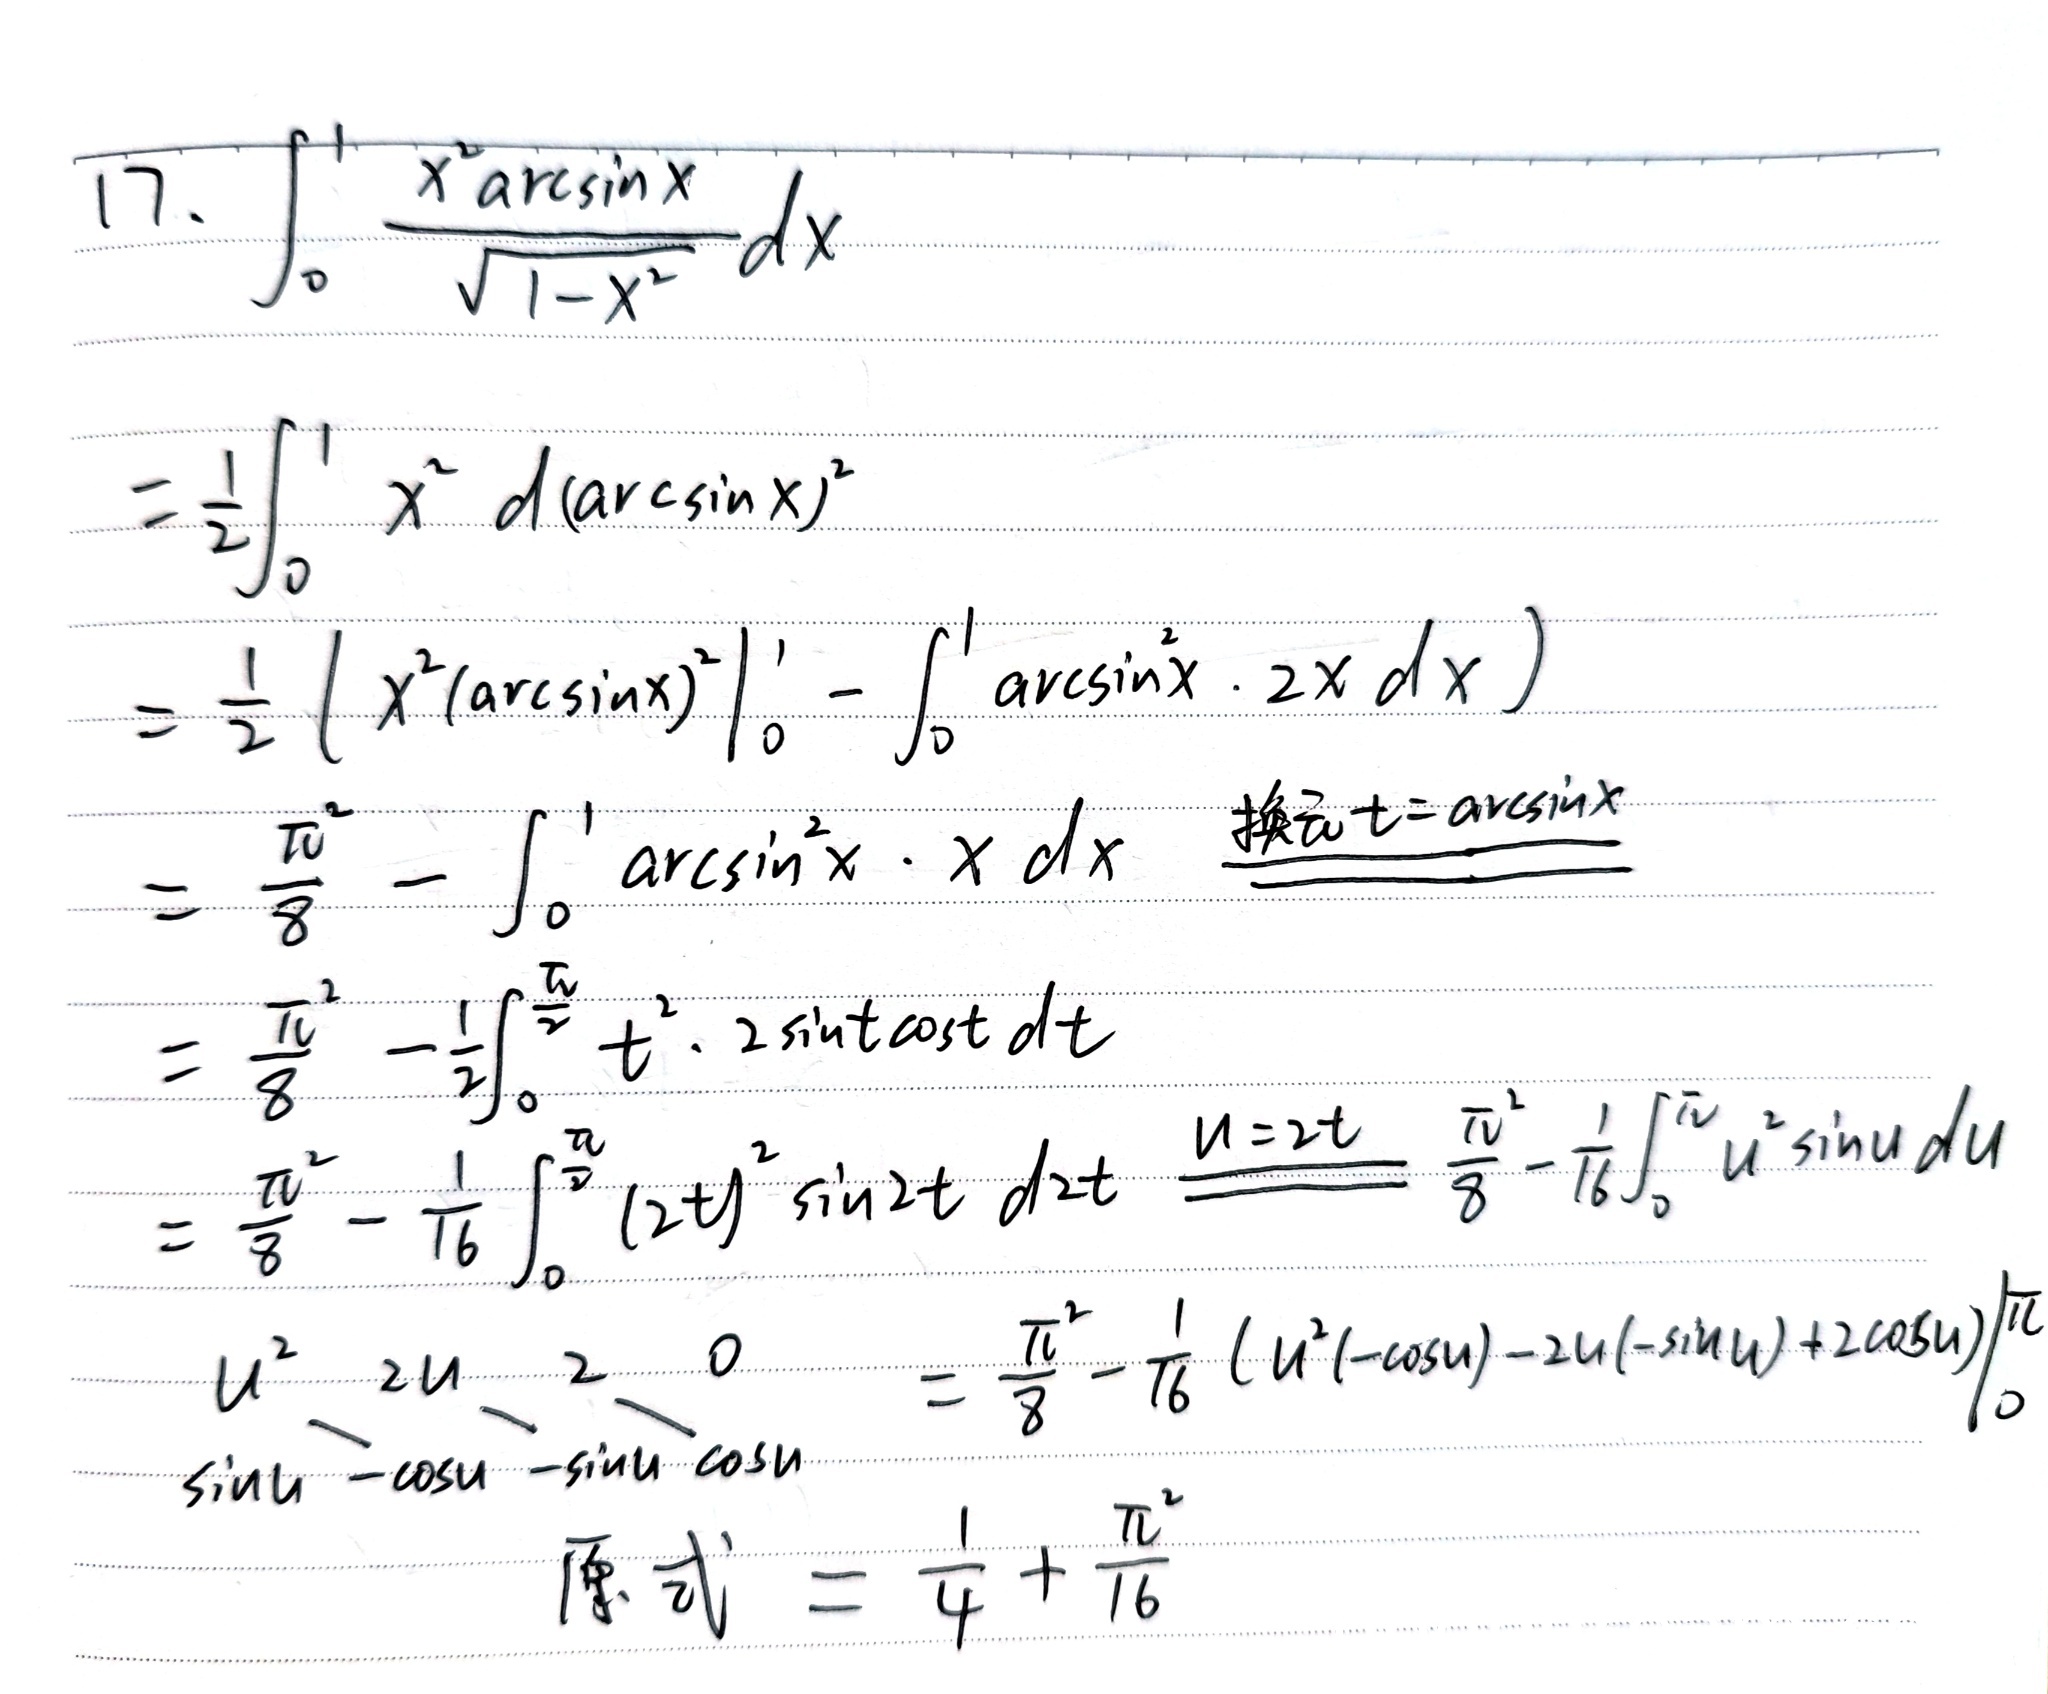 17. ∫₀¹ x² arcsin x / √(1-x²) dx
= 1/2 ∫₀¹ x² d(arcsin x)²
= 1/2 ( x²(arcsin x)² |₀¹ - ∫₀¹ arcsin²x · 2x dx )
= π²/8 - ∫₀¹ arcsin²x · x dx 换元 t = arcsin x
= π²/8 - 1/2 ∫₀^(π/2) t² · 2 sin t cos t dt
= π²/8 - 1/16 ∫₀^(π/2) (2t)² sin 2t d2t u = 2t π²/8 - 1/16 ∫₀^π u² sin u du
u² 2u 2 0 = π²/8 - 1/16 (u²(-cos u) - 2u(-sin u) + 2cos u) |₀^π
sin u -cos u -sin u cos u
原式 = 1/4 + π²/16